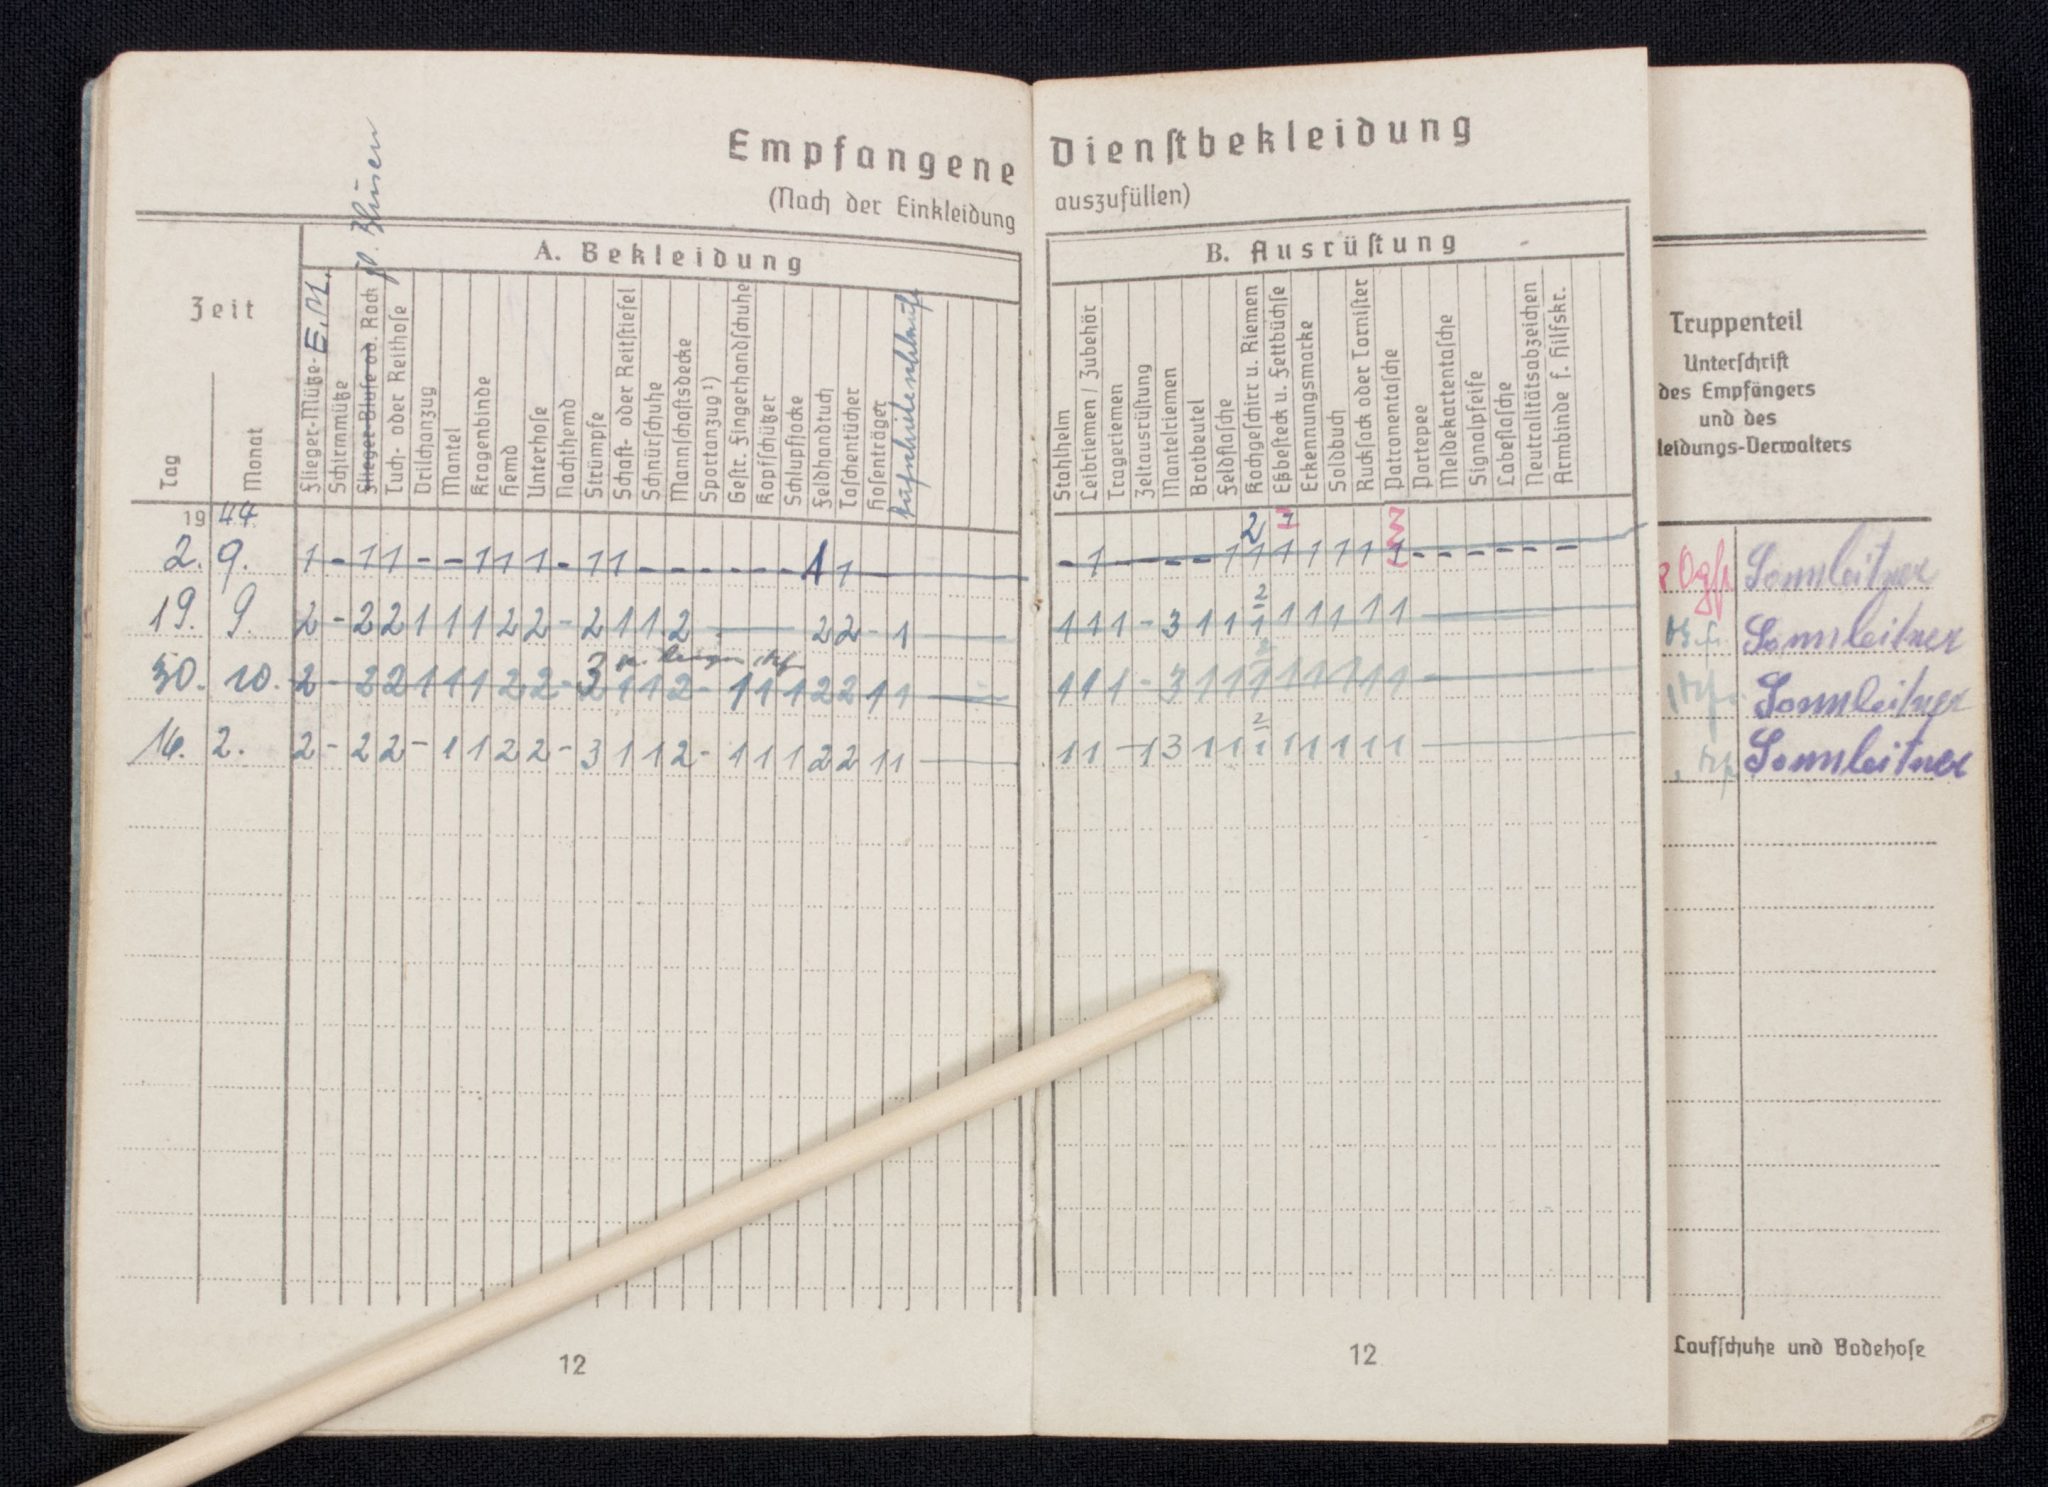 Empfangene Dienstbekleidung
(Nach der Einkleidung auszufüllen)
Zeit
A. Bekleidung
B. Ausrüstung
Tag
Monat
Flieger-Mütze- E.M.
Schirmmütze
Flieger-Bluse od. Rock
fl. Blusen
Tuch- oder Reithose
Drilchanzug
Mantel
Kragenbinde
Hemd
Unterhose
Nachthemd
Strümpfe
Schaft- oder Reitstiefel
Schnürschuhe
Mannschaftsdecke
Sportanzug ¹)
Gestr. Fingerhandschuhe
Kopfschützer
Schlupfjacke
Feldhandtuch
Taschentücher
Hosenträger
Stahlhelm
Leibriemen / Zubehör
Trageriemen
Zeltausrüstung
Mantelriemen
Brotbeutel
Feldflasche
Kochgeschirr u. Riemen
Eßbesteck u. Fettbüchse
Erkennungsmarke
Soldbuch
Rucksack oder Tornister
Patronentasche
Portepee
Meldekartentasche
Signalpfeife
Labeflasche
Neutralitätsabzeichen
Armbinde f. Hilfskr.
Truppenteil
Unterschrift
des Empfängers
und des
leidungs-Verwalters
19 44
2. 9. 1 - 1 1 - - 1 1 1 - 1 1 - - - - - - 1 1 - 1 - - - 1 1 1 1 1 1 1 - - - - - - Sonnleitner
19. 9. 2 - 2 2 1 1 1 2 2 - 2 1 1 2 - 2 2 - 1 1 1 1 - 3 1 1 1 1 1 1 1 1 Sonnleitner
30. 10. 2 - 2 2 1 1 1 2 2 - 3 1 1 2 - 1 1 1 2 2 1 1 1 1 1 - 3 1 1 1 1 1 1 1 1 Sonnleitner
16. 2. 2 - 2 2 - 1 1 2 2 - 3 1 1 2 - 1 1 1 2 2 1 1 1 1 - 1 3 1 1 1 1 1 1 1 1 Sonnleitner
12
12
Laufschuhe und Badehose